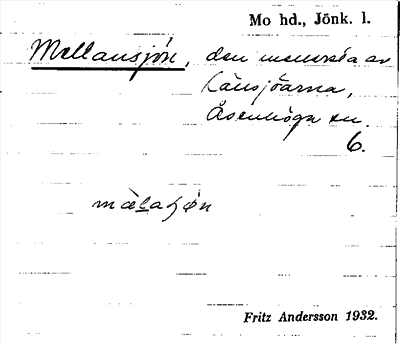 Mo hd., Jönk. l.
Mellansjön, den mellersta av
Länsjöarna,
Åsenhöga sn.
6.
Fritz Andersson 1932.